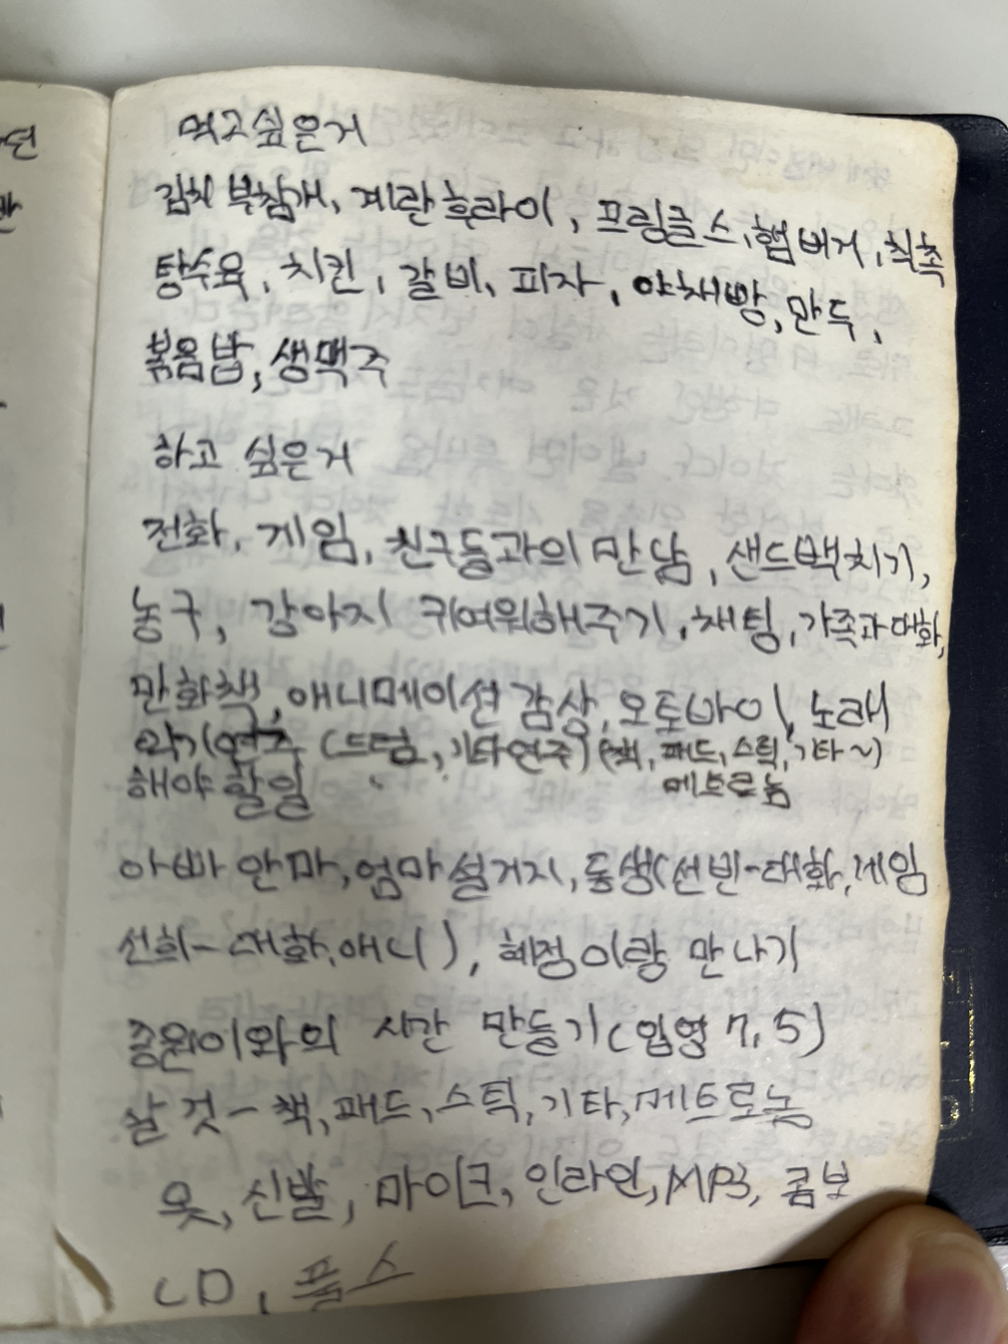 먹고싶은거
김치 부침개, 계란후라이, 프링글스, 햄버거, 칙촉
탕수육, 치킨, 갈비, 피자, 야채빵, 만두,
볶음밥, 생맥주
하고 싶은거
전화, 게임, 친구들과의 만남, 샌드백치기,
농구, 강아지 귀여워해주기, 채팅, 가족과대화,
만화책, 애니메이션 감상, 오토바이, 노래
악기연주 (드럼, 기타연주) (책, 패드, 스틱, 기타~)
메트로놈
해야 할일
아빠 안마, 엄마 설거지, 동생(선빈-대화, 게임
선희-대화, 애니), 혜정이랑 만나기
종원이와의 시간 만들기(입영 7, 5)
살 것-책, 패드, 스틱, 기타, 메트로놈
옷, 신발, 마이크, 인라인, MP3, 콤보
CD, 플스